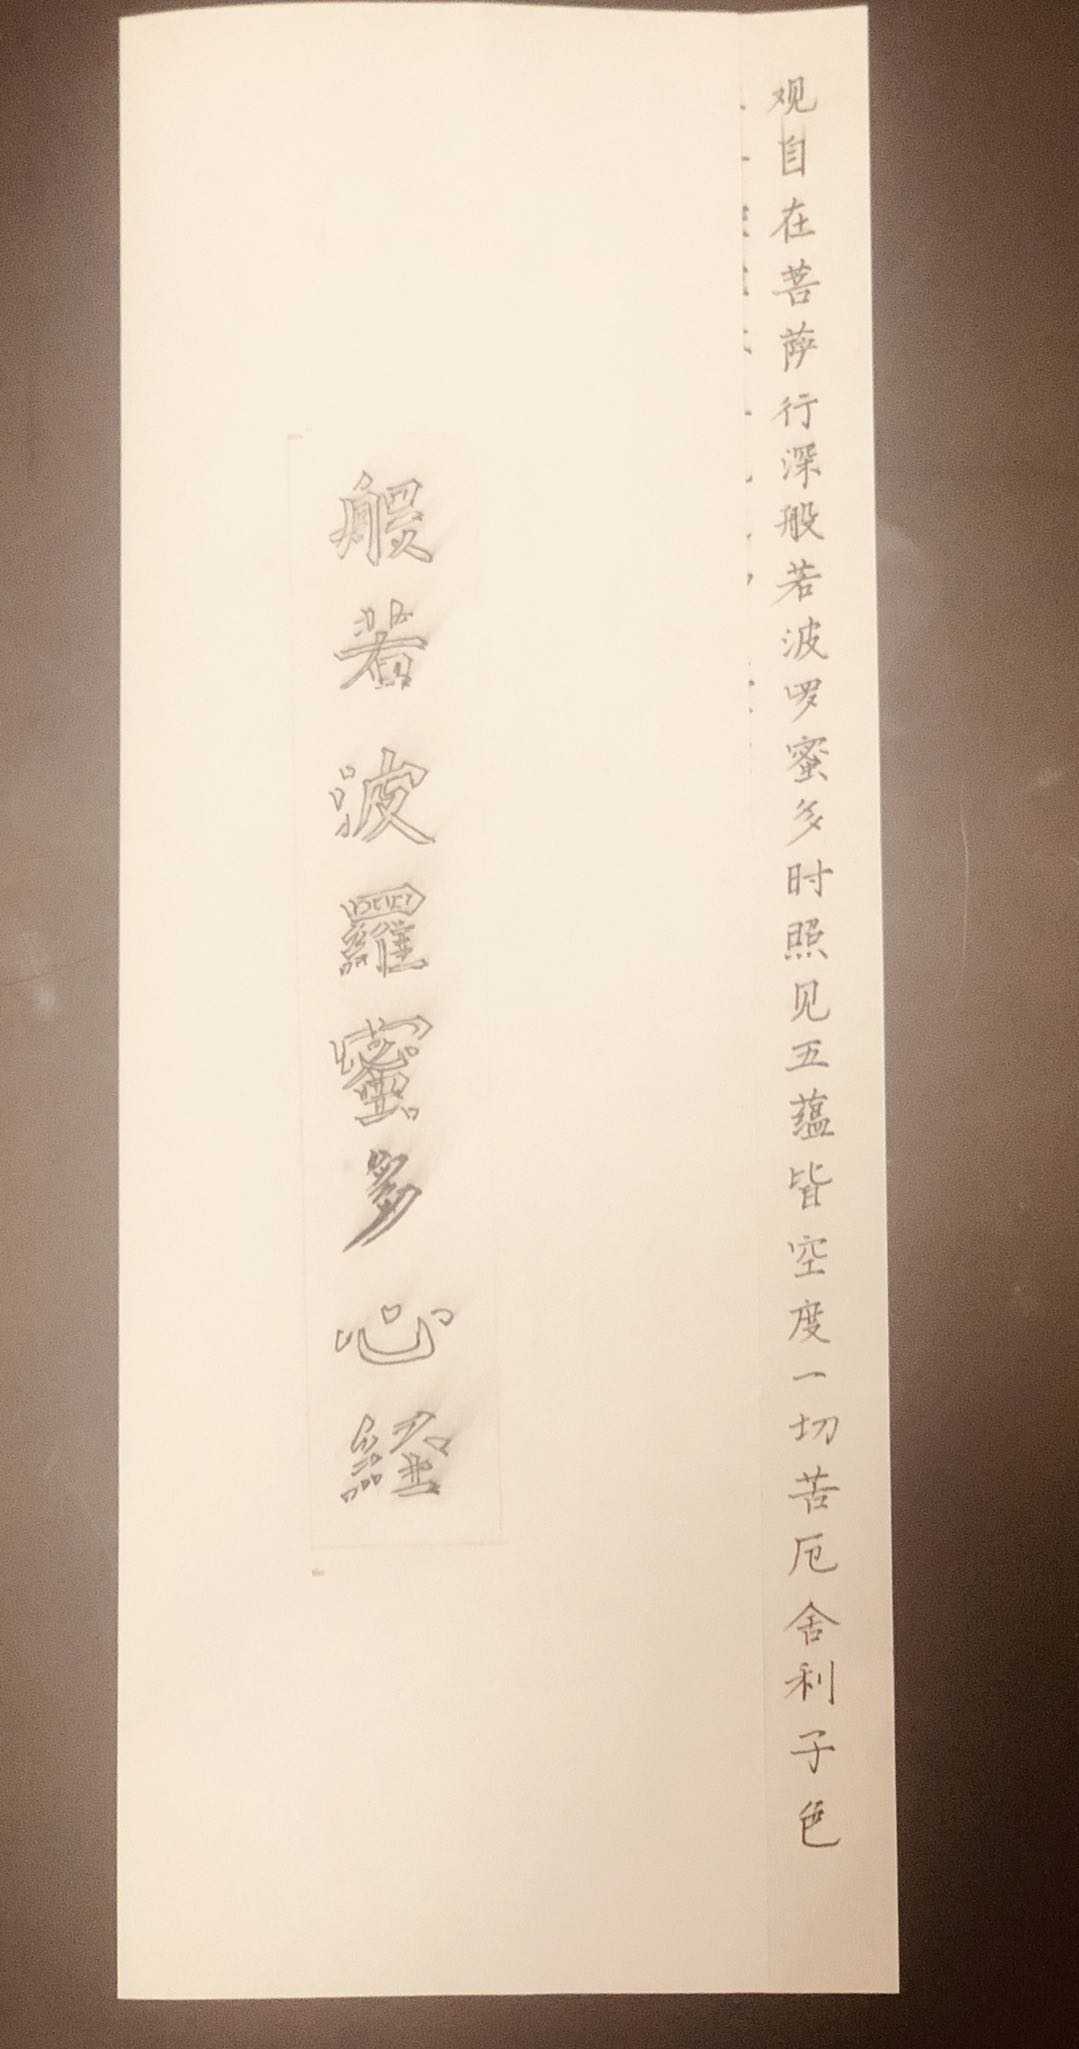 观自在菩萨行深般若波啰蜜多时照见五蕴皆空度一切苦厄舍利子色
般若波羅蜜多心経